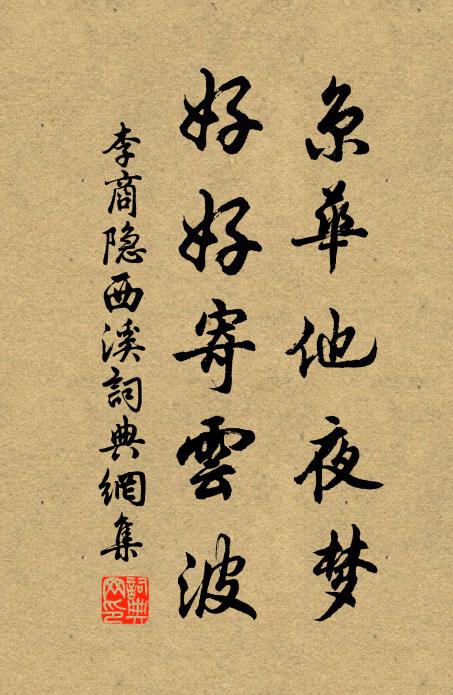 京華他夜梦
好好寄雲波
李商隐西溪詞典網集
詞典网印